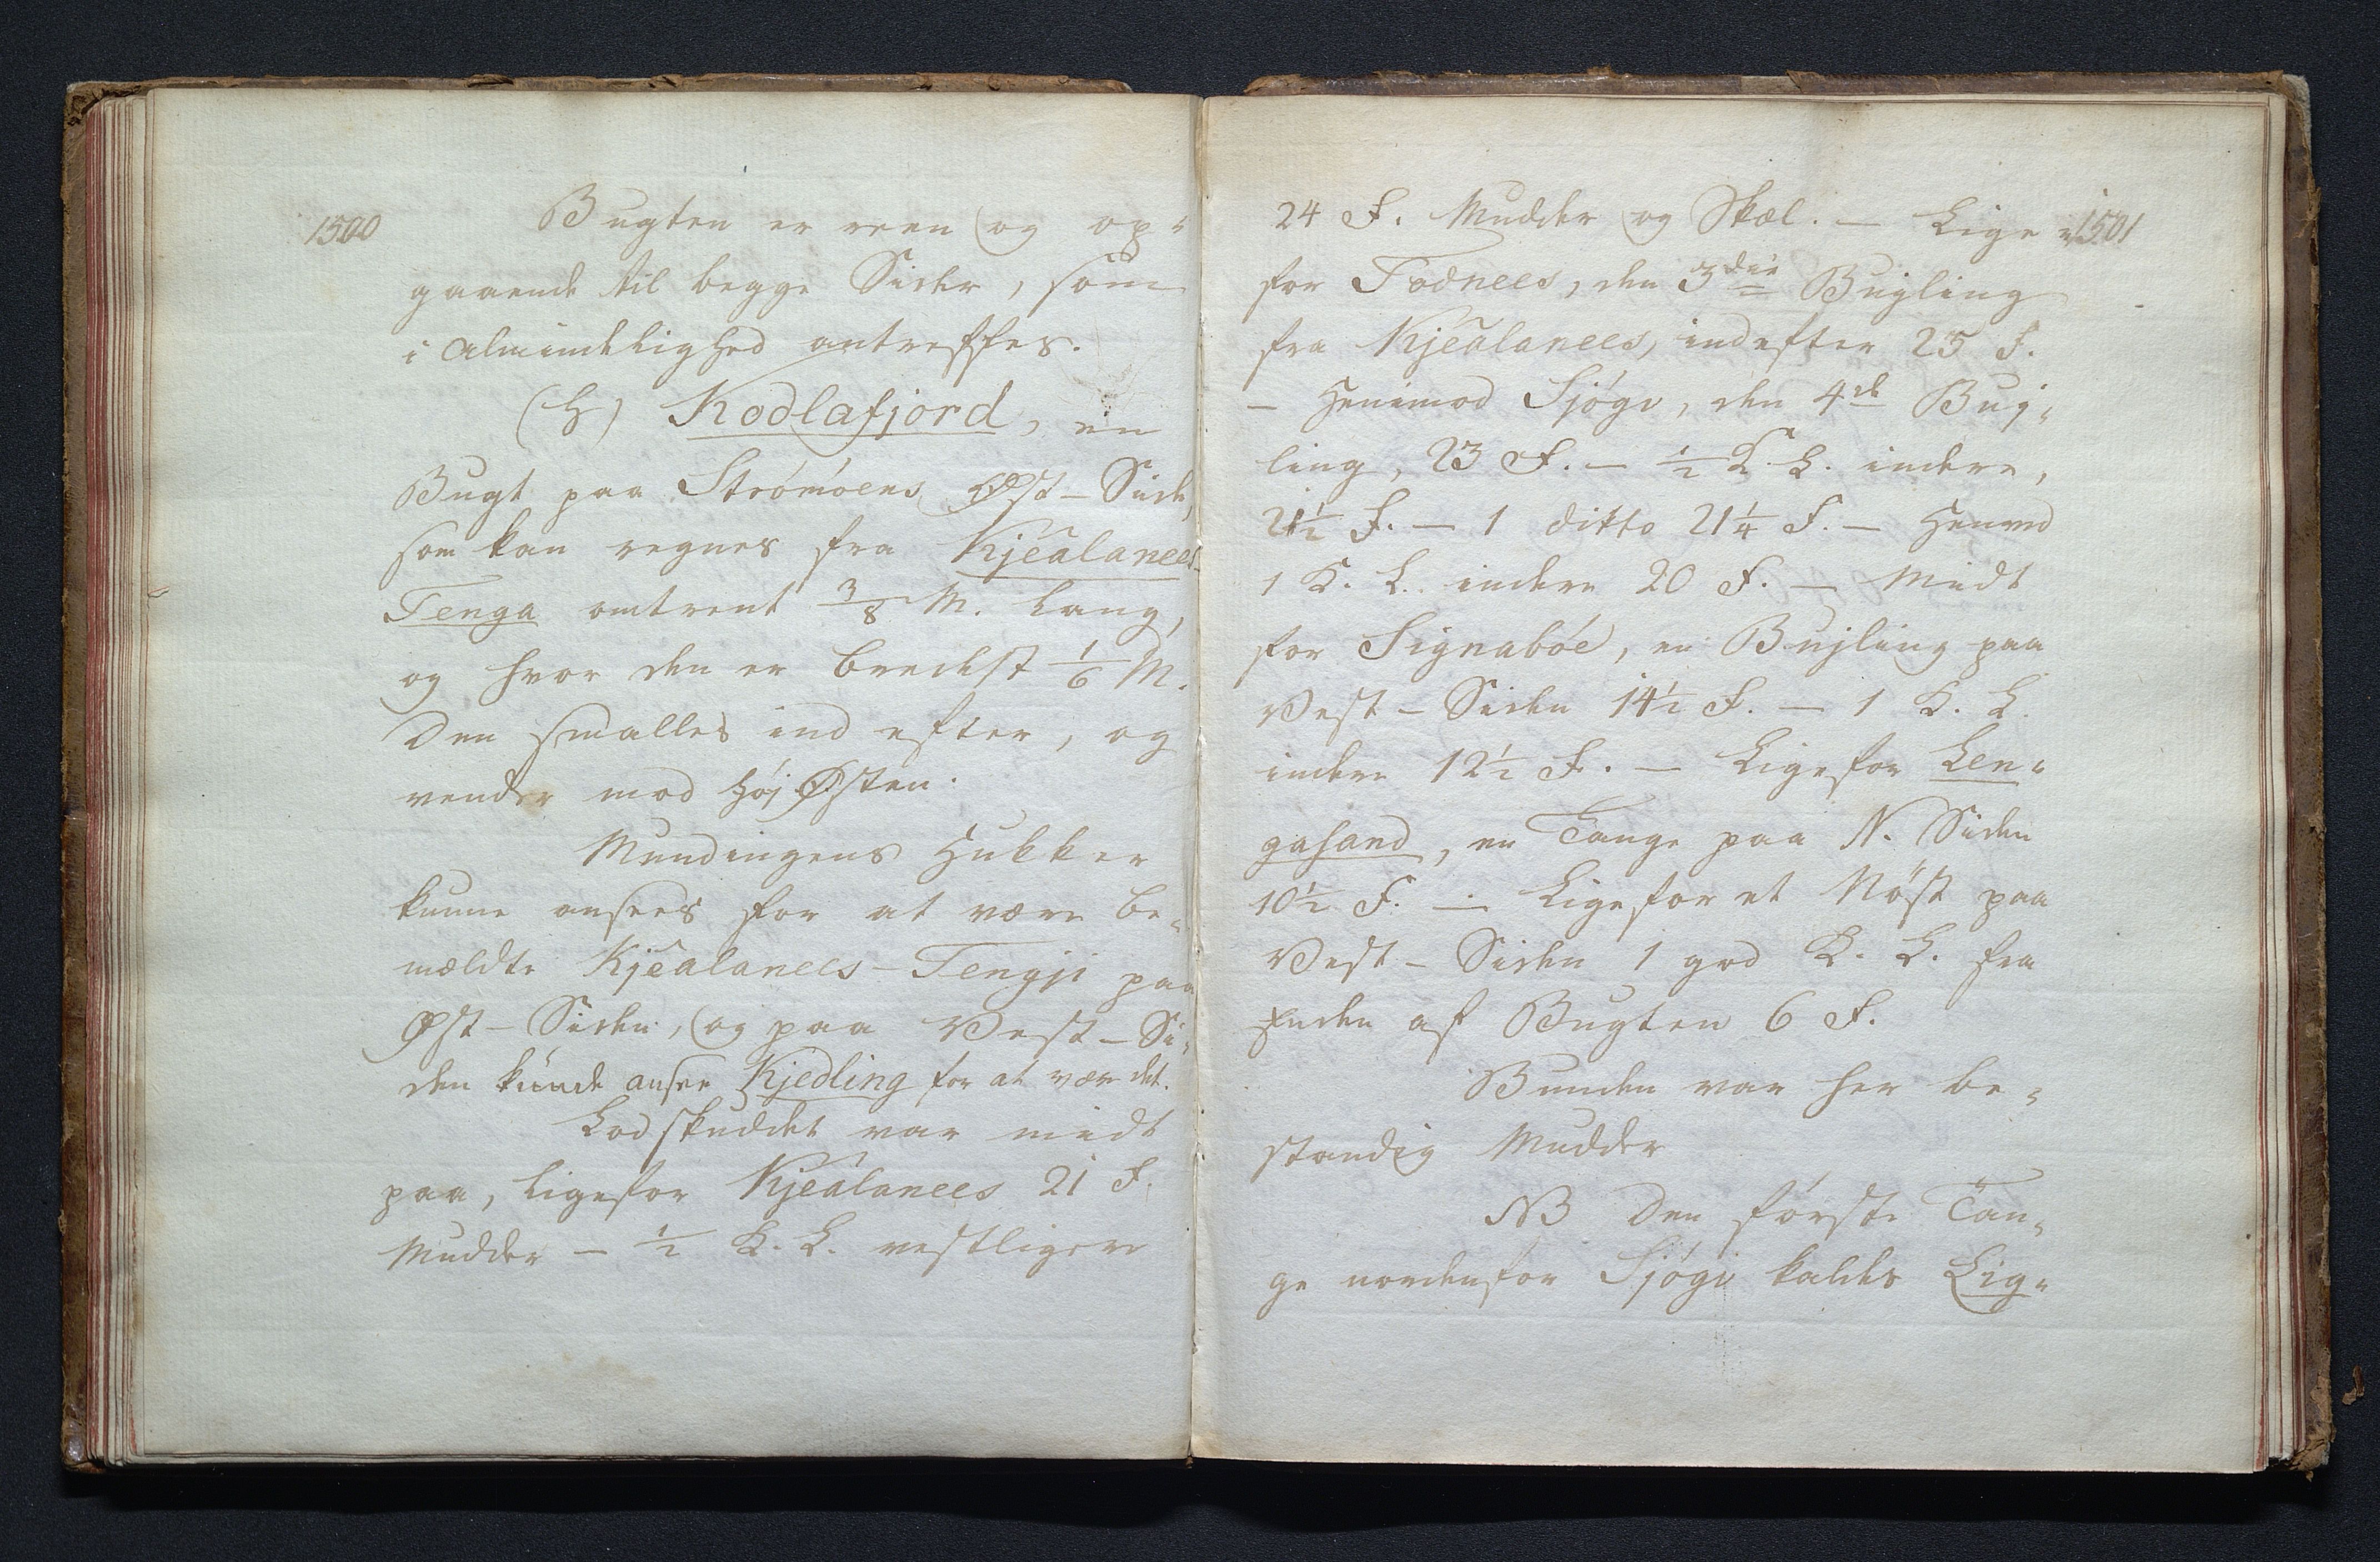 1500
Bugten er reen og op-
gaaende til begge Sider, som
i Almindelighed antreffes.
(h) Kodlafjord, en
Bugt paa Strömöens Øst-Side,
som kan regnes fra Kjealanees-
Tenga omtrent 3/8 M. lang,
og hvor den er bredest 1/6 M.
Den smalles ind efter, og
vender mod Høj Østen.
Mundingens Hukker
kunne ansees for at være be-
mældte Kjealanees-Tengji paa
Øst-Siden, og paa Vest-Si-
den kunde ansee Kjedling for at være det.
Lodskuddet var midt
paa, ligefor Kjealanees 21 F.
Mudder - 1/2 K. L. vestligere
1501
24 F. Mudder og Skæl. - Lige
for Todnees, den 3die Bugling
fra Kjealanees, indefter 25 F.
- Henimod Sjógv, den 4de Buj-
ling, 23 F. - 1/2 K. L. indere,
21 1/2 F. - 1 ditto 21 1/4 F. - Henved
1 K. L. indere 20 F. - Midt
for Signabøe, en Bujling paa
Vest-Siden 14 1/2 F. - 1 K. L.
indere 12 1/2 F. - Ligefor Len-
gasand, en Tange paa N. Siden
10 1/2 F. - Ligefor et Nøst paa
Vest-Siden 1 god K. L. fra
Enden af Bugten 6 F.
Bunden var her be-
standig Mudder
NB Den første Tan-
ge nordenfor Sjógv kaldes Lig-